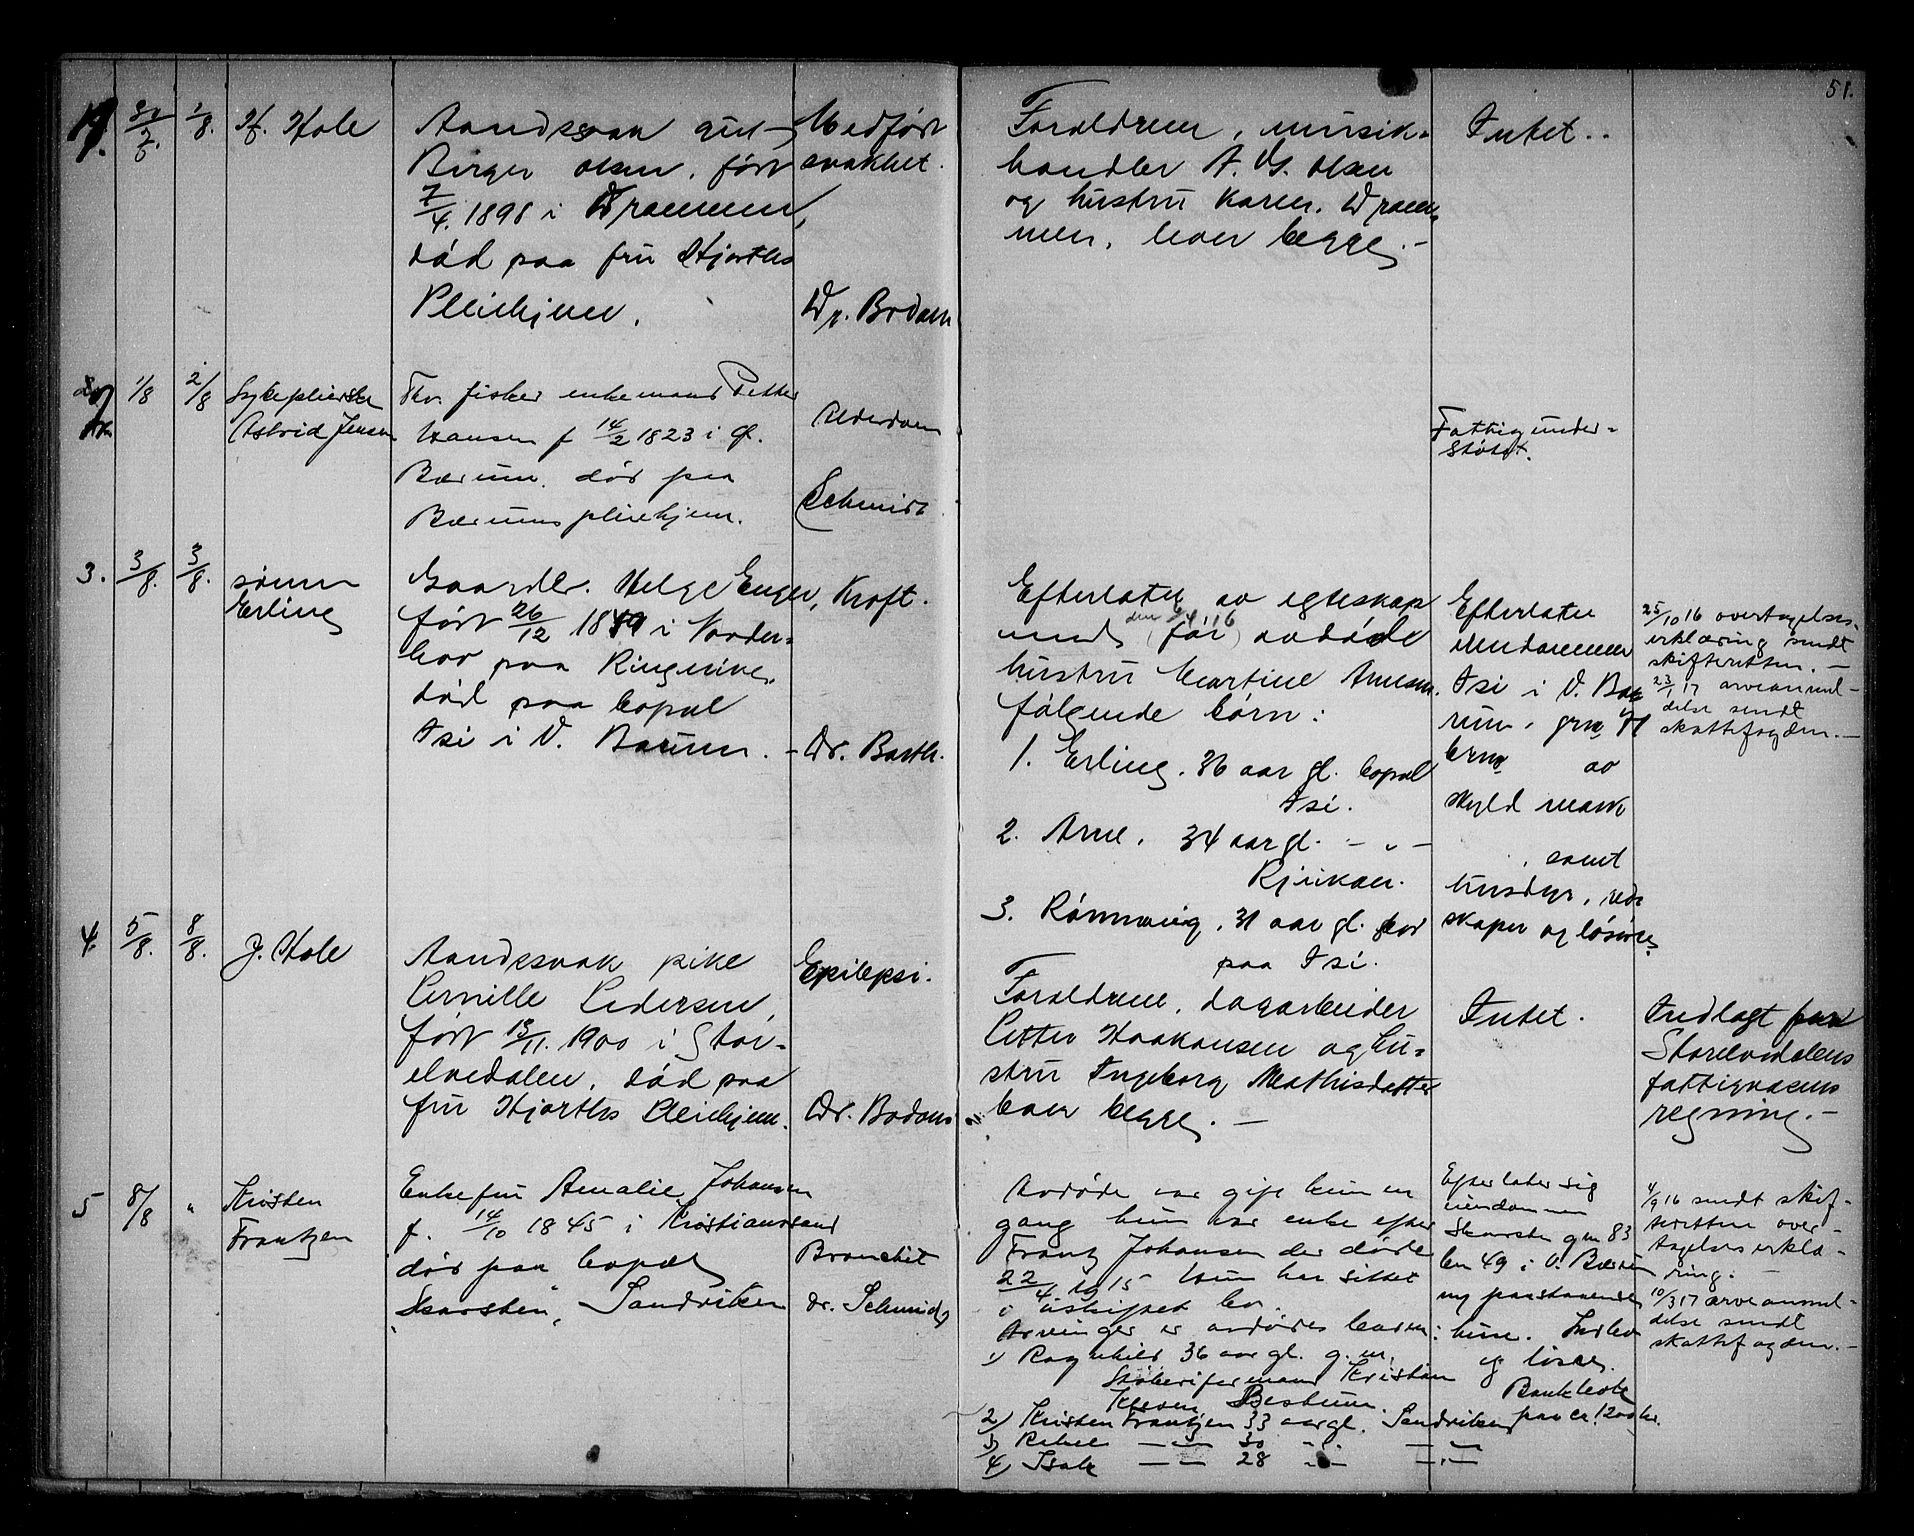 51.
30/7. 1/8. J. Hole
Aandssvak gut
Birger Olsen, født
7/4. 1898 i Drammen,
død paa fru Hjorths
Pleiehjem.
Medfødt
svakhet.
Dr. Bodom
Forældrene, musik-
handler A. G. Olsen
og hustru Karen, Dram-
men, lever begge.-
Intet..
1/8 2/8 Sykepleierske
Astrid Jensen
Fhv. fisker enkemand Petter
Hansen f 14/2 1823 i Ø.
Bærum, død paa
Bærums pleiehjem.
Alderdom
Schmidt
Fattigunder-
støttet.
3. 3/8. 3/8. sønnen
Erling
Gaardbr. Helge Enger,
født 26/12 18 i Norder-
hov paa Ringerike,
død paa bopæl
Isi i V. Bærum. -
Kræft.
Dr. Barth.
Efterlater av egteskap
med (før avdøde
hustru Martine Arnesen.
følgende børn:
1. Erling, 36 aar gl. bopæl
Isi.
2. Arne, 34 aar gl. - " -
Rjukan.
3. Rønnaug, 31 aar gl. bor
paa Isi.
Efterlater
eiendommen
Isi i V. Bæ-
rum, grn
brnr av
skyld mark
, samt
husdyr, red-
skaper og løsøre
25/10 16 overtagelses-
erklæring sendt
skifteretten. -
23/1 17 arveanmel-
delse sendt
skattefogden. -
4. 5/8. 8/8. J. Hole
Aandssvak pike
Pernille Pedersen,
født 13/11. 1900 i Stor-
elvedalen, død paa
fru Hjorths Pleiehjem.
Epilepsi.
Dr. Bodom
Forældrene, dagarbeider
Petter Haakonsen og hu-
stru Ingeborg Mathisdatter
lever begge. -
Intet.
Indlagt paa
Storelvedalens
fattigvæsens
regning. -
5 8/8 " Kristen
Frantzen
Enkefru Amalie Johansen
f. 14/10 1845 i Kristianssand
død paa bopæl
"Skarsten", Sandviken
Bronchit
Dr. Schmidt
Avdøde var gift kun en
gang hun var enke efter
Frantz Johansen der døde
22/4 1915 Hun har sittet
i uskiftet bo.
Arvinger er avdødes barn:
1) Ragnhild 36 aar gl. g. m.
Støberiformand Kristian
Kleven Bestum.
2) Kristen Frantzen 33 aar gl. Sandviken
3) 30 - " -
4) Isak - " - 28 - " -
Efterlater sig
eiendommen
Skarsten gnr 83
bnr 49 i V. Bærum
m/ paastaaende
huse. Indbo
og løsøre.
Bankbok
paa ca. 1200 kr.
4/9 16 sendt skif-
teretten over-
tagelseserklæ-
ring. -
10/3 17 arveanmel-
delse sendt
skattefogden. -